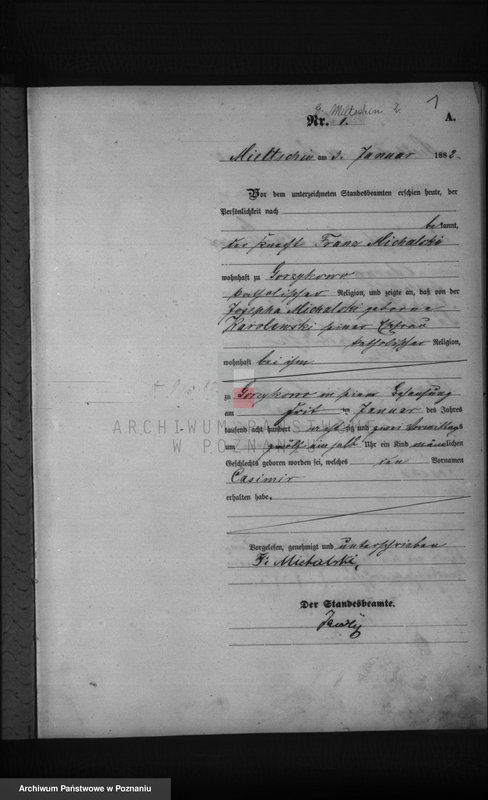 G. Mieltschin 2.
1
Nr. 1.
A.
Mieltschin am 3. Januar 1882.
Vor dem unterzeichneten Standesbeamten erschien heute, der
Persönlichkeit nach
bekannt,
der Knecht Franz Michalski
wohnhaft zu Gorzykowo
katholischer Religion, und zeigte an, daß von der
Josepha Michalski geborene
Karolewski seiner Ehefrau
katholischer Religion,
wohnhaft bei ihm
zu Gorzykowo in seiner Behausung
am Januar des Jahres
tausend acht hundert achtzig und zwei Vormittags
um zwölf ein halb Uhr ein Kind männlichen
Geschlechts geboren worden sei, welches den Vornamen
Casimir
erhalten habe.
Vorgelesen, genehmigt und unterschrieben
F: Michalski,
Der Standesbeamte.
ARCHIWUM PAŃSTWOWE
W POZNANIU
Archiwum Państwowe w Poznaniu